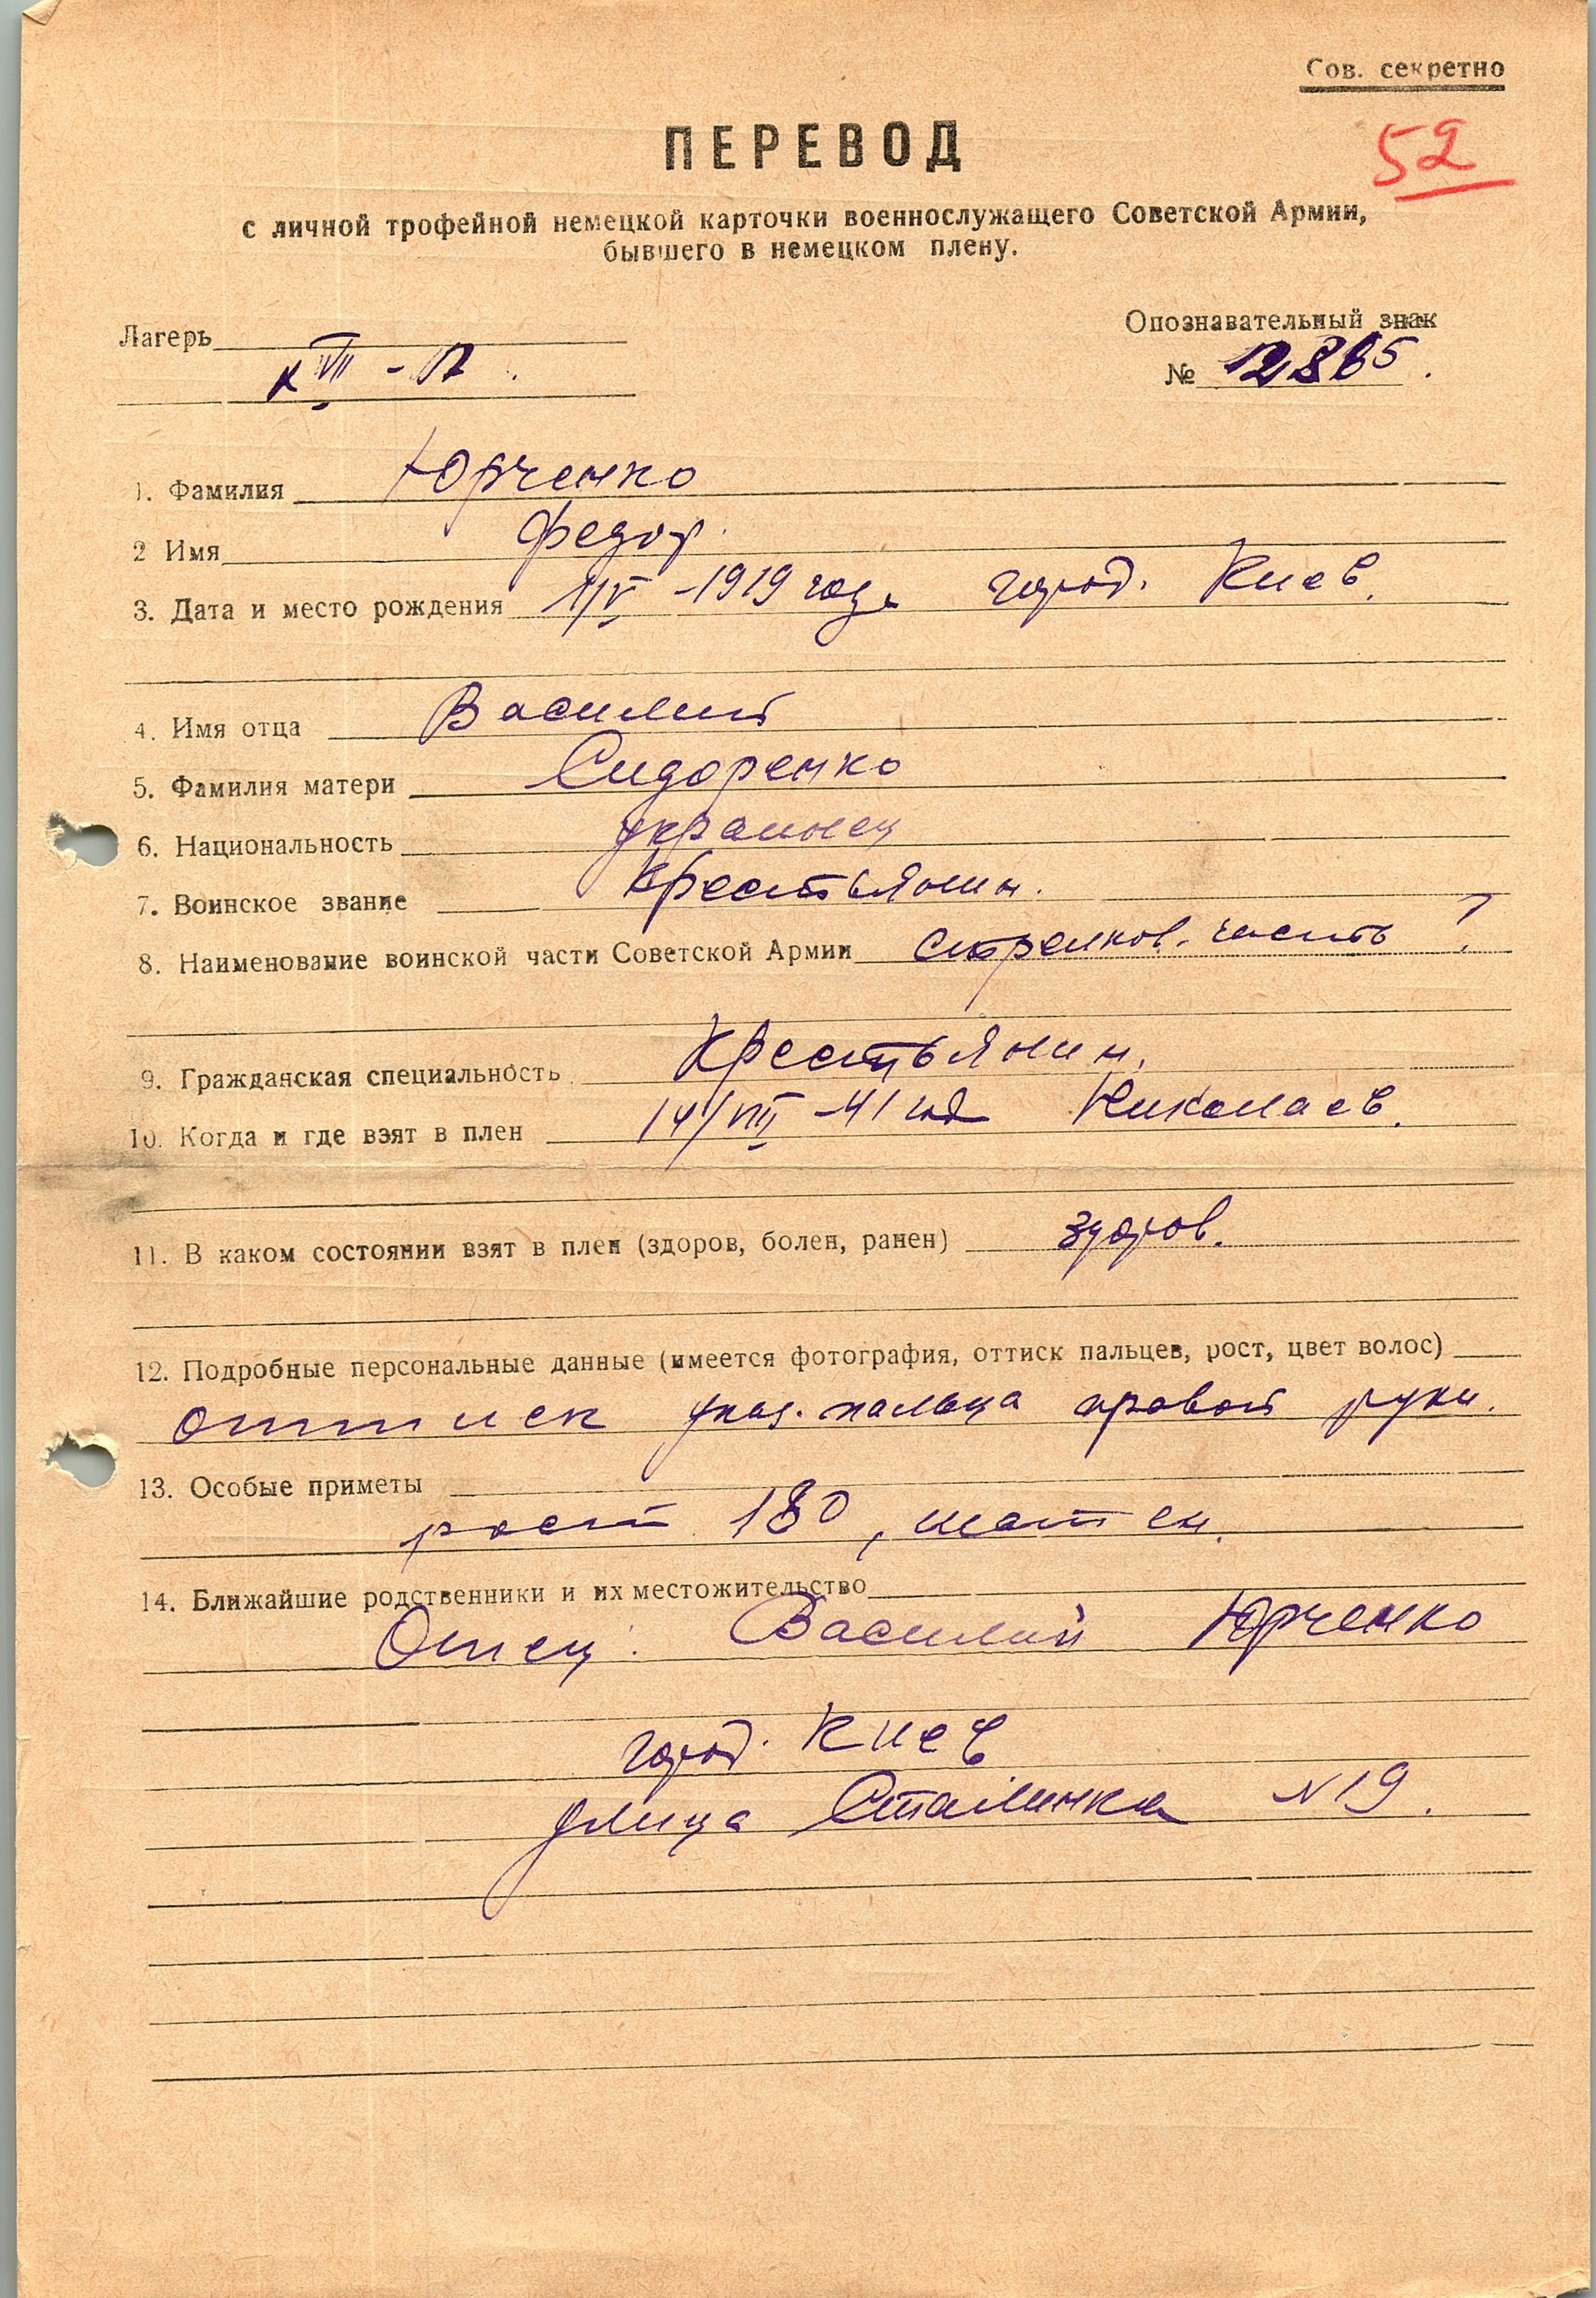 Сов. секретно
52
ПЕРЕВОД
с личной трофейной немецкой карточки военнослужащего Советской Армии,
бывшего в немецком плену.
Лагерь XVII - А.
Опознавательный знак
№ 12865.
1. Фамилия Юрченко
2 Имя Федор.
3. Дата и место рождения 1/V - 1919 года город. Киев.
4. Имя отца Василий
5. Фамилия матери Сидоренко
6. Национальность украинец
7. Воинское звание Крестьянин.
8. Наименование воинской части Советской Армии стрелков. часть
9. Гражданская специальность Крестьянин.
10. Когда и где взят в плен 14/VIII - 41 год Николаев.
11. В каком состоянии взят в плен (здоров, болен, ранен) здоров.
12. Подробные персональные данные (имеется фотография, оттиск пальцев, рост, цвет волос)
оттиск указ. пальца правой руки.
13. Особые приметы
рост 180, шатен.
14. Ближайшие родственники и их местожительство
Отец: Василий Юрченко
город. Киев
улица Сталинка N 19.